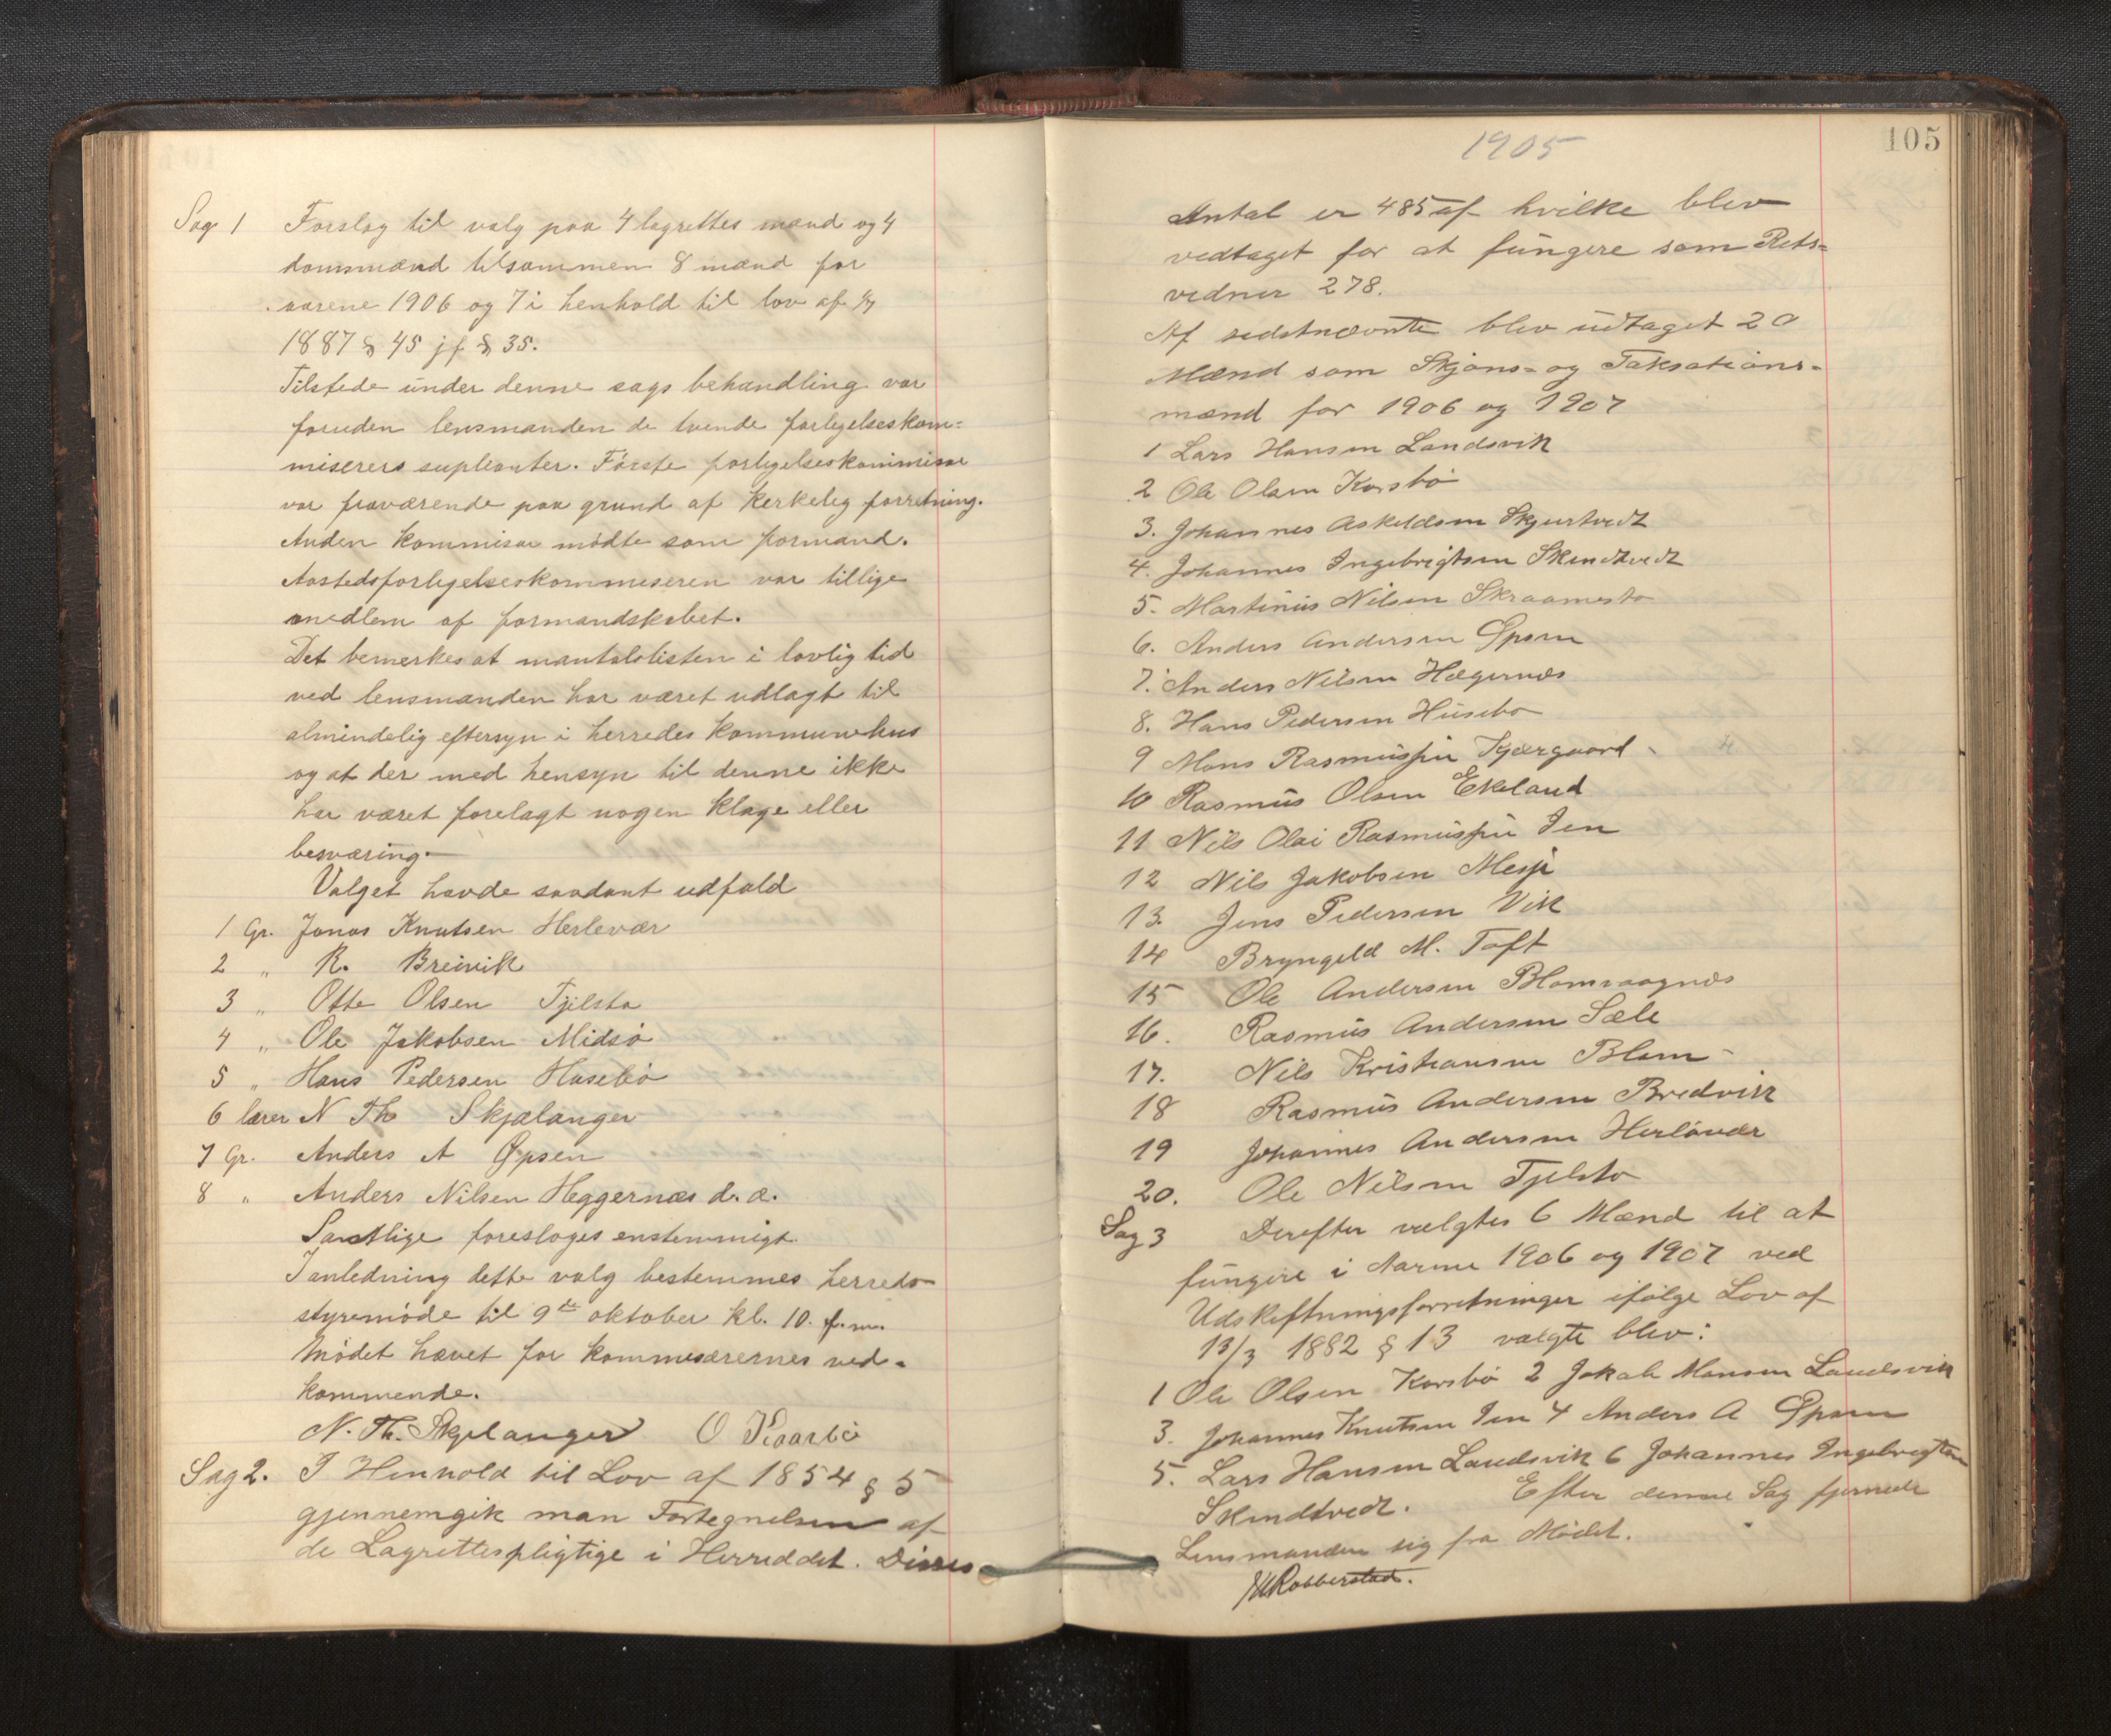 Sag 1 Forslag til valg paa 4 lagrettes mænd og 4
domsmænd tilsammen 8 mænd for
aarene 1906 og 7 i henhold til lov af 1/7
1887 § 45 jf § 35.
Tilstede under denne sags behandling var
foruden lensmanden de tvende forligelseskom-
miserers suplianter. Første forligelseskommisær
var fraværende paa grund af kerkelig forretning.
Anden kommisær mødte som formand.
Aastedsforligelseskommiseren var tillige
medlem af formandskabet.
Det bemerkes at mantalslisten i lovlig tid
ved lensmanden har været udlagt til
almindelig eftersyn i herredes kommunehus
og at der med hensyn til denne ikke
har været forelagt nogen klage eller
besværing.
Valget havde saadant udfald
1 Gr. Jonas Knutsen Herlevær
2 " R. Breivik
3 " Otto Olsen Tjelsta
4 " Ole Jakobsen Midsø
5 " Hans Pedersen Husebø
6 lærer N Th Skjælanger
7 Gr. Anders A Øpsen
8 " Anders Nilsen Heggernæs d. æ.
Samtlige foresloges enstemmigt.
I anledning dette valg bestemmes herreds-
styremøde til 9de oktober kl. 10. f.m.
Mødet hævet for kommisærernes ved-
kommende.
N. Th. Skjelanger O Kaarbø
Sag 2. I Henhold til Lov af 1854 § 5
gjennemgik man Fortegnelsen af
de Lagrettespligtige i Herreddet. Disses
1905
105
Antal er 485 af hvilke blev
vedtaget for at fungere som Rets-
vedner 278.
Af sidstnævnte blev udtaget 20
Mænd som Skjøns- og Taksations-
mænd for 1906 og 1907
1 Lars Hansen Landsvik
2 Ole Olsen Korsbø
3. Johannes Askeldsen Skjertvedt
4. Johannes Ingebrigtsen Skindtvedt
5. Martinus Nilsen Skraamestø
6. Anders Andersen Øpsen
7. Anders Nilsen Hægernæs
8. Hans Pedersen Husebø
9 Mons Rasmussen Kjærgaard
10 Rasmus Olsen Ekeland
11 Nils Olai Rasmussen Ien
12 Nils Jakobsen Mesje
13. Jens Pedersen Vik
14 Bryngeld M. Toft
15 Ole Andersen Blomvaagnæs
16. Rasmus Andersen Sæle
17. Nils Kristiansen Blom
18 Rasmus Andersen Bredvik
19 Johannes Andersen Herløvær
20. Ole Nilsen Tjelsto
Sag 3 Derefter vælgtes 6 Mænd til at
fungere i Aarene 1906 og 1907 ved
Udskiftningsforretninger ifølge Lov af
13/3 1882 § 13 valgte blev:
1 Ole Olsen Korsbø 2 Jakob Monsen Landsvik
3. Johannes Knutsen Ien 4 Anders A Øpsen
5. Lars Hansen Landsvik 6 Johannes Ingebrigtsen
Skindtvedt. Efter denne Sag fjernede
Lensmanden sig fra Mødet.
Robberstad.